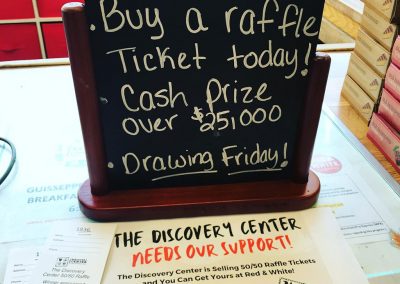 Buy a raffle
Ticket today!
Cash Prize
over $25,000
Drawing Friday!
GUISSEPP
BREAKFA
THE DISCOVERY CENTER
NEEDS OUR SUPPORT!
The Discovery Center is Selling 50/50 Raffle Tickets
and You Can Get Yours at Red & White!
The Discovery
Center 50/50 Raffle